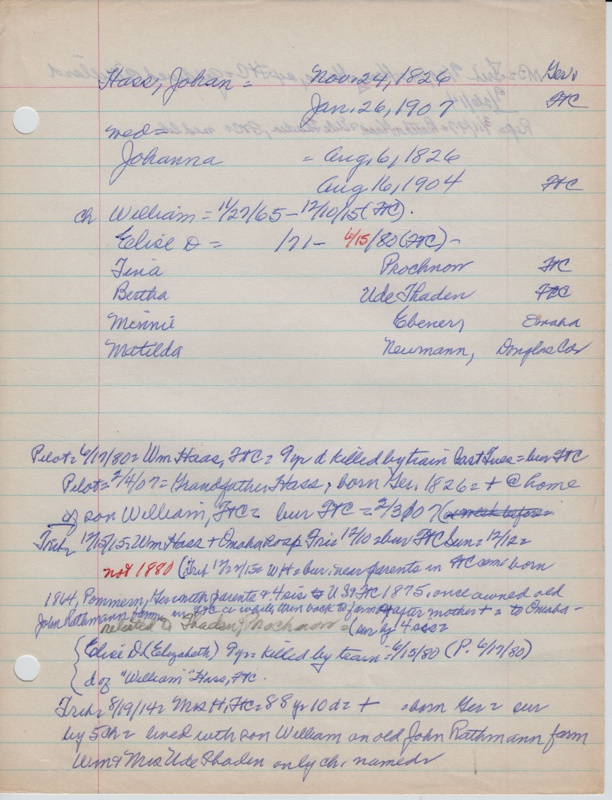 Hass, Johan = Nov. 24, 1826 Ger.
Jan. 26, 1907 FtC
med =
Johanna = Aug, 6, 1826
Aug 16, 1904 FtC
ch William = 11/27/65 - 12/10/15 (FtC).
Elise D = /71 - 6/15/80 (FtC) -
Tina Prochnow FtC
Bertha Ude Thaden FtC
Minnie Ebener, Omaha
Matilda Neumann, Douglas Co
Pilot = 6/17/80 = Wm Haas, FtC = 9 yr d killed by train last Tues = bur FtC
Pilot = 2/4/07 = Grandfather Hass, born Ger. 1826 = + @ home
of son William, FtC = bur FtC = 2/3/07
Trib = 12/15/15 = Wm Hass + Omaha Hosp Fri = 12/10 = bur FtC Sun = 12/12 =
not 1880 (Trib 12/22/15 = WH = bur. near parents in FtC cem born
1864, Pommern, Ger with parents & 4 sis to US FtC 1875, once owned old
John Rathmann home in FtC a while then back to farm after mother + = to Omaha -
related to Thaden, Prochnow = (sur by 4 sis =
Elise D (Elizabeth) 9 yr = killed by train = 6/15/80 (P. 6/17/80)
d of "William" Hass, FtC.
Trib = 8/19/14 = Mrs H, FtC = 88 yr 10 d = + = born Ger = sur
by 5 ch = lived with son William on old John Rathmann farm
Wm & Mrs Ude Thaden only ch. named